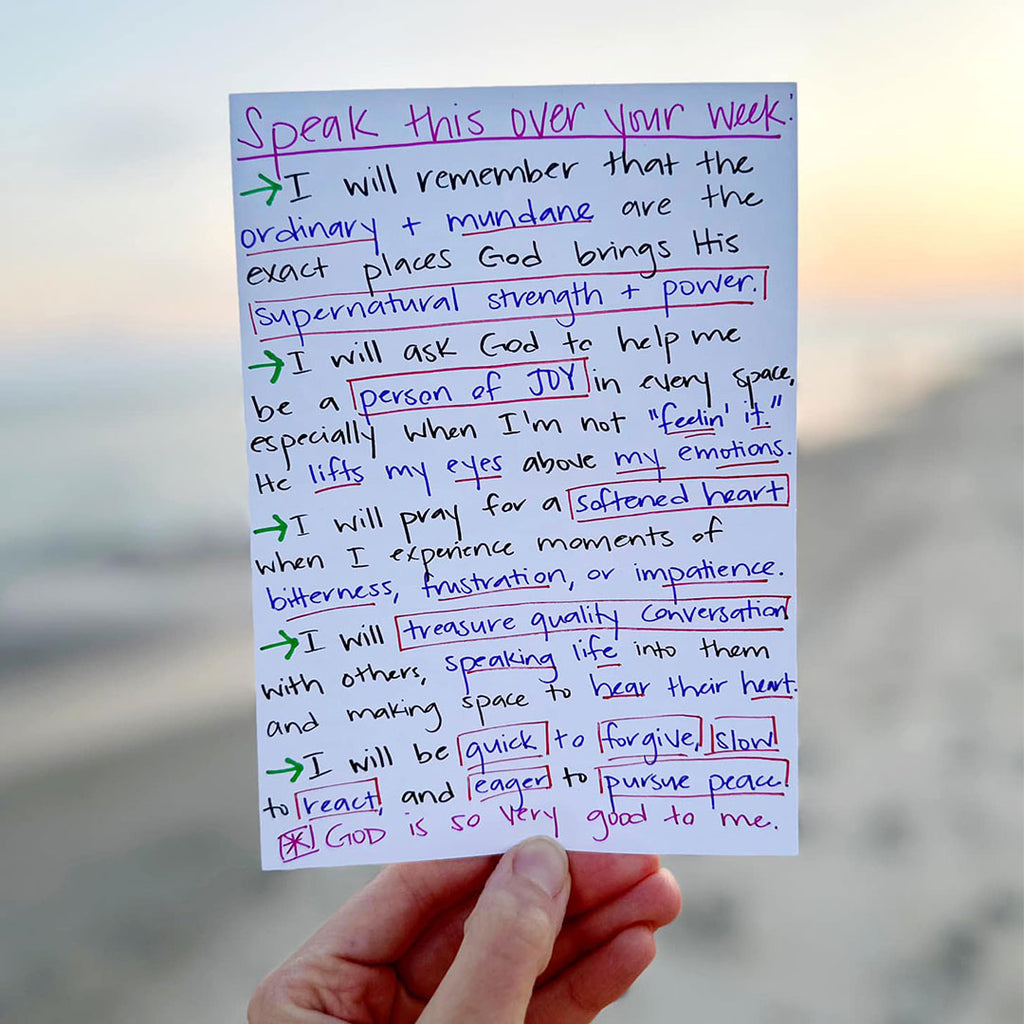 Speak this over your week:
→ I will remember that the
ordinary + mundane are the
exact places God brings His
supernatural strength + power.
→ I will ask God to help me
be a person of JOY in every space,
especially when I'm not "feelin' it."
He lifts my eyes above my emotions.
→ I will pray for a softened heart
when I experience moments of
bitterness, frustration, or impatience.
→ I will treasure quality conversation
with others, speaking life into them
and making space to hear their heart.
→ I will be quick to forgive, slow
to react, and eager to pursue peace!
* GOD is so very good to me.